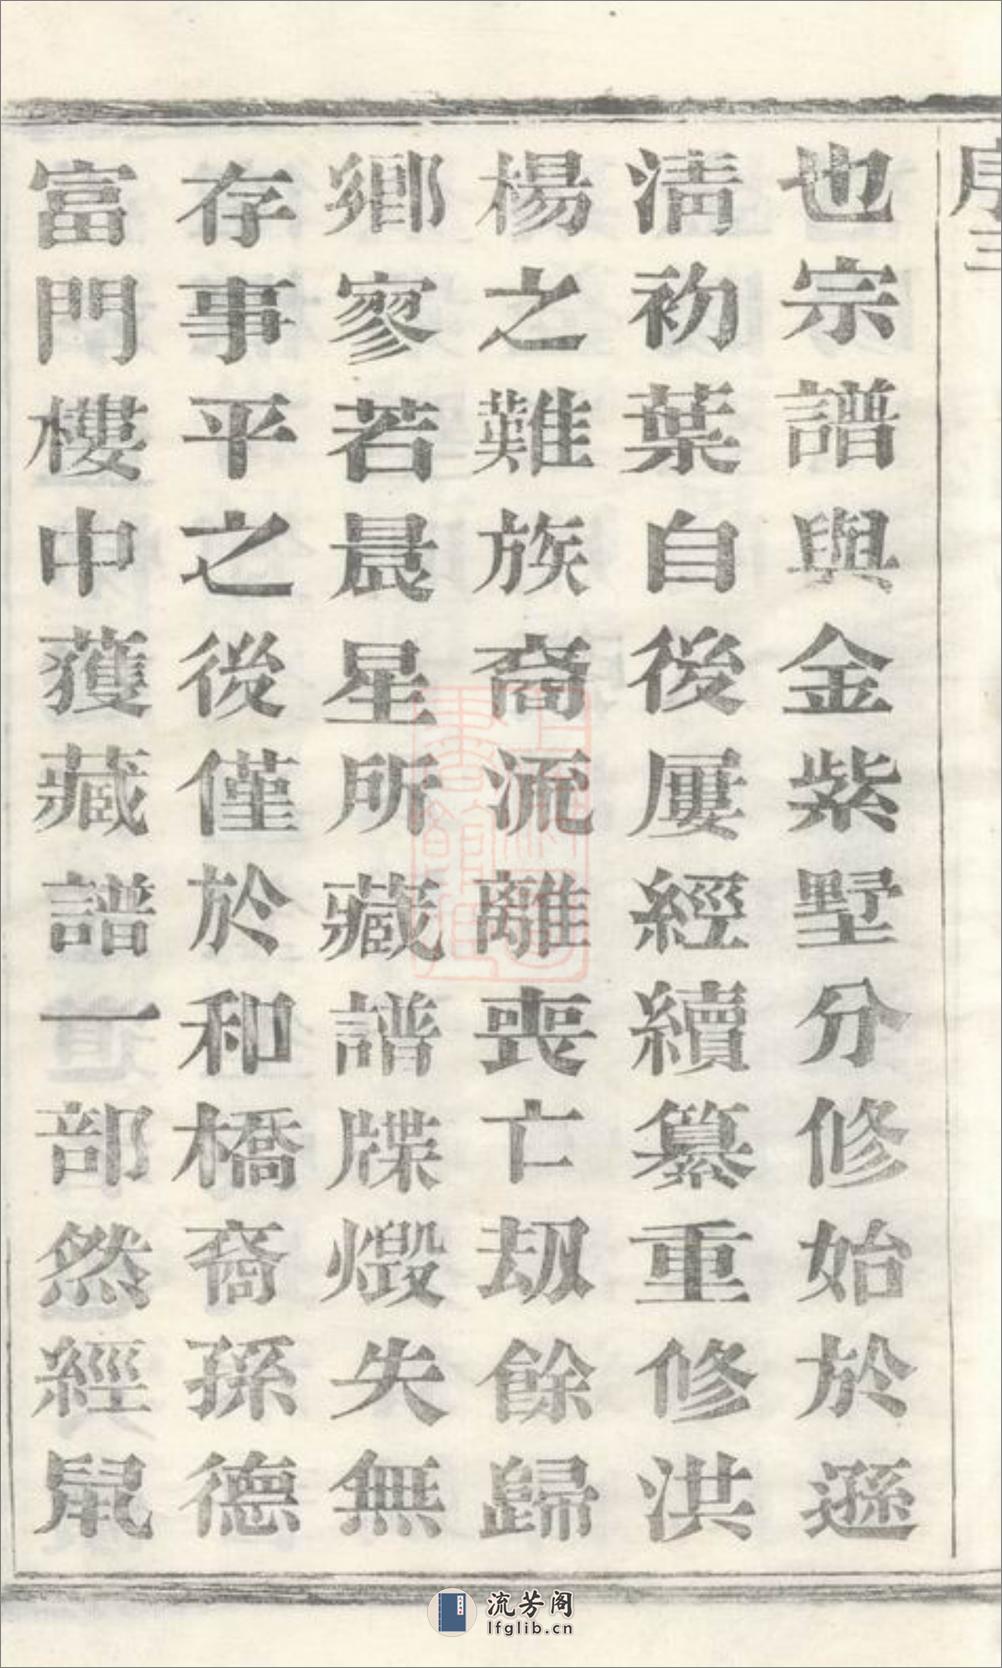 序三
也宗譜與金紫墅分修始於遜
淸初葉自後屢經續纂重修洪
楊之難族裔流離喪亡刼餘歸
鄉家若晨星所藏譜牒燬失無
存事平之後僅於和橋裔孫德
富門樓中獲藏譜一部然經鼠
流芳阁
lfglib.cn